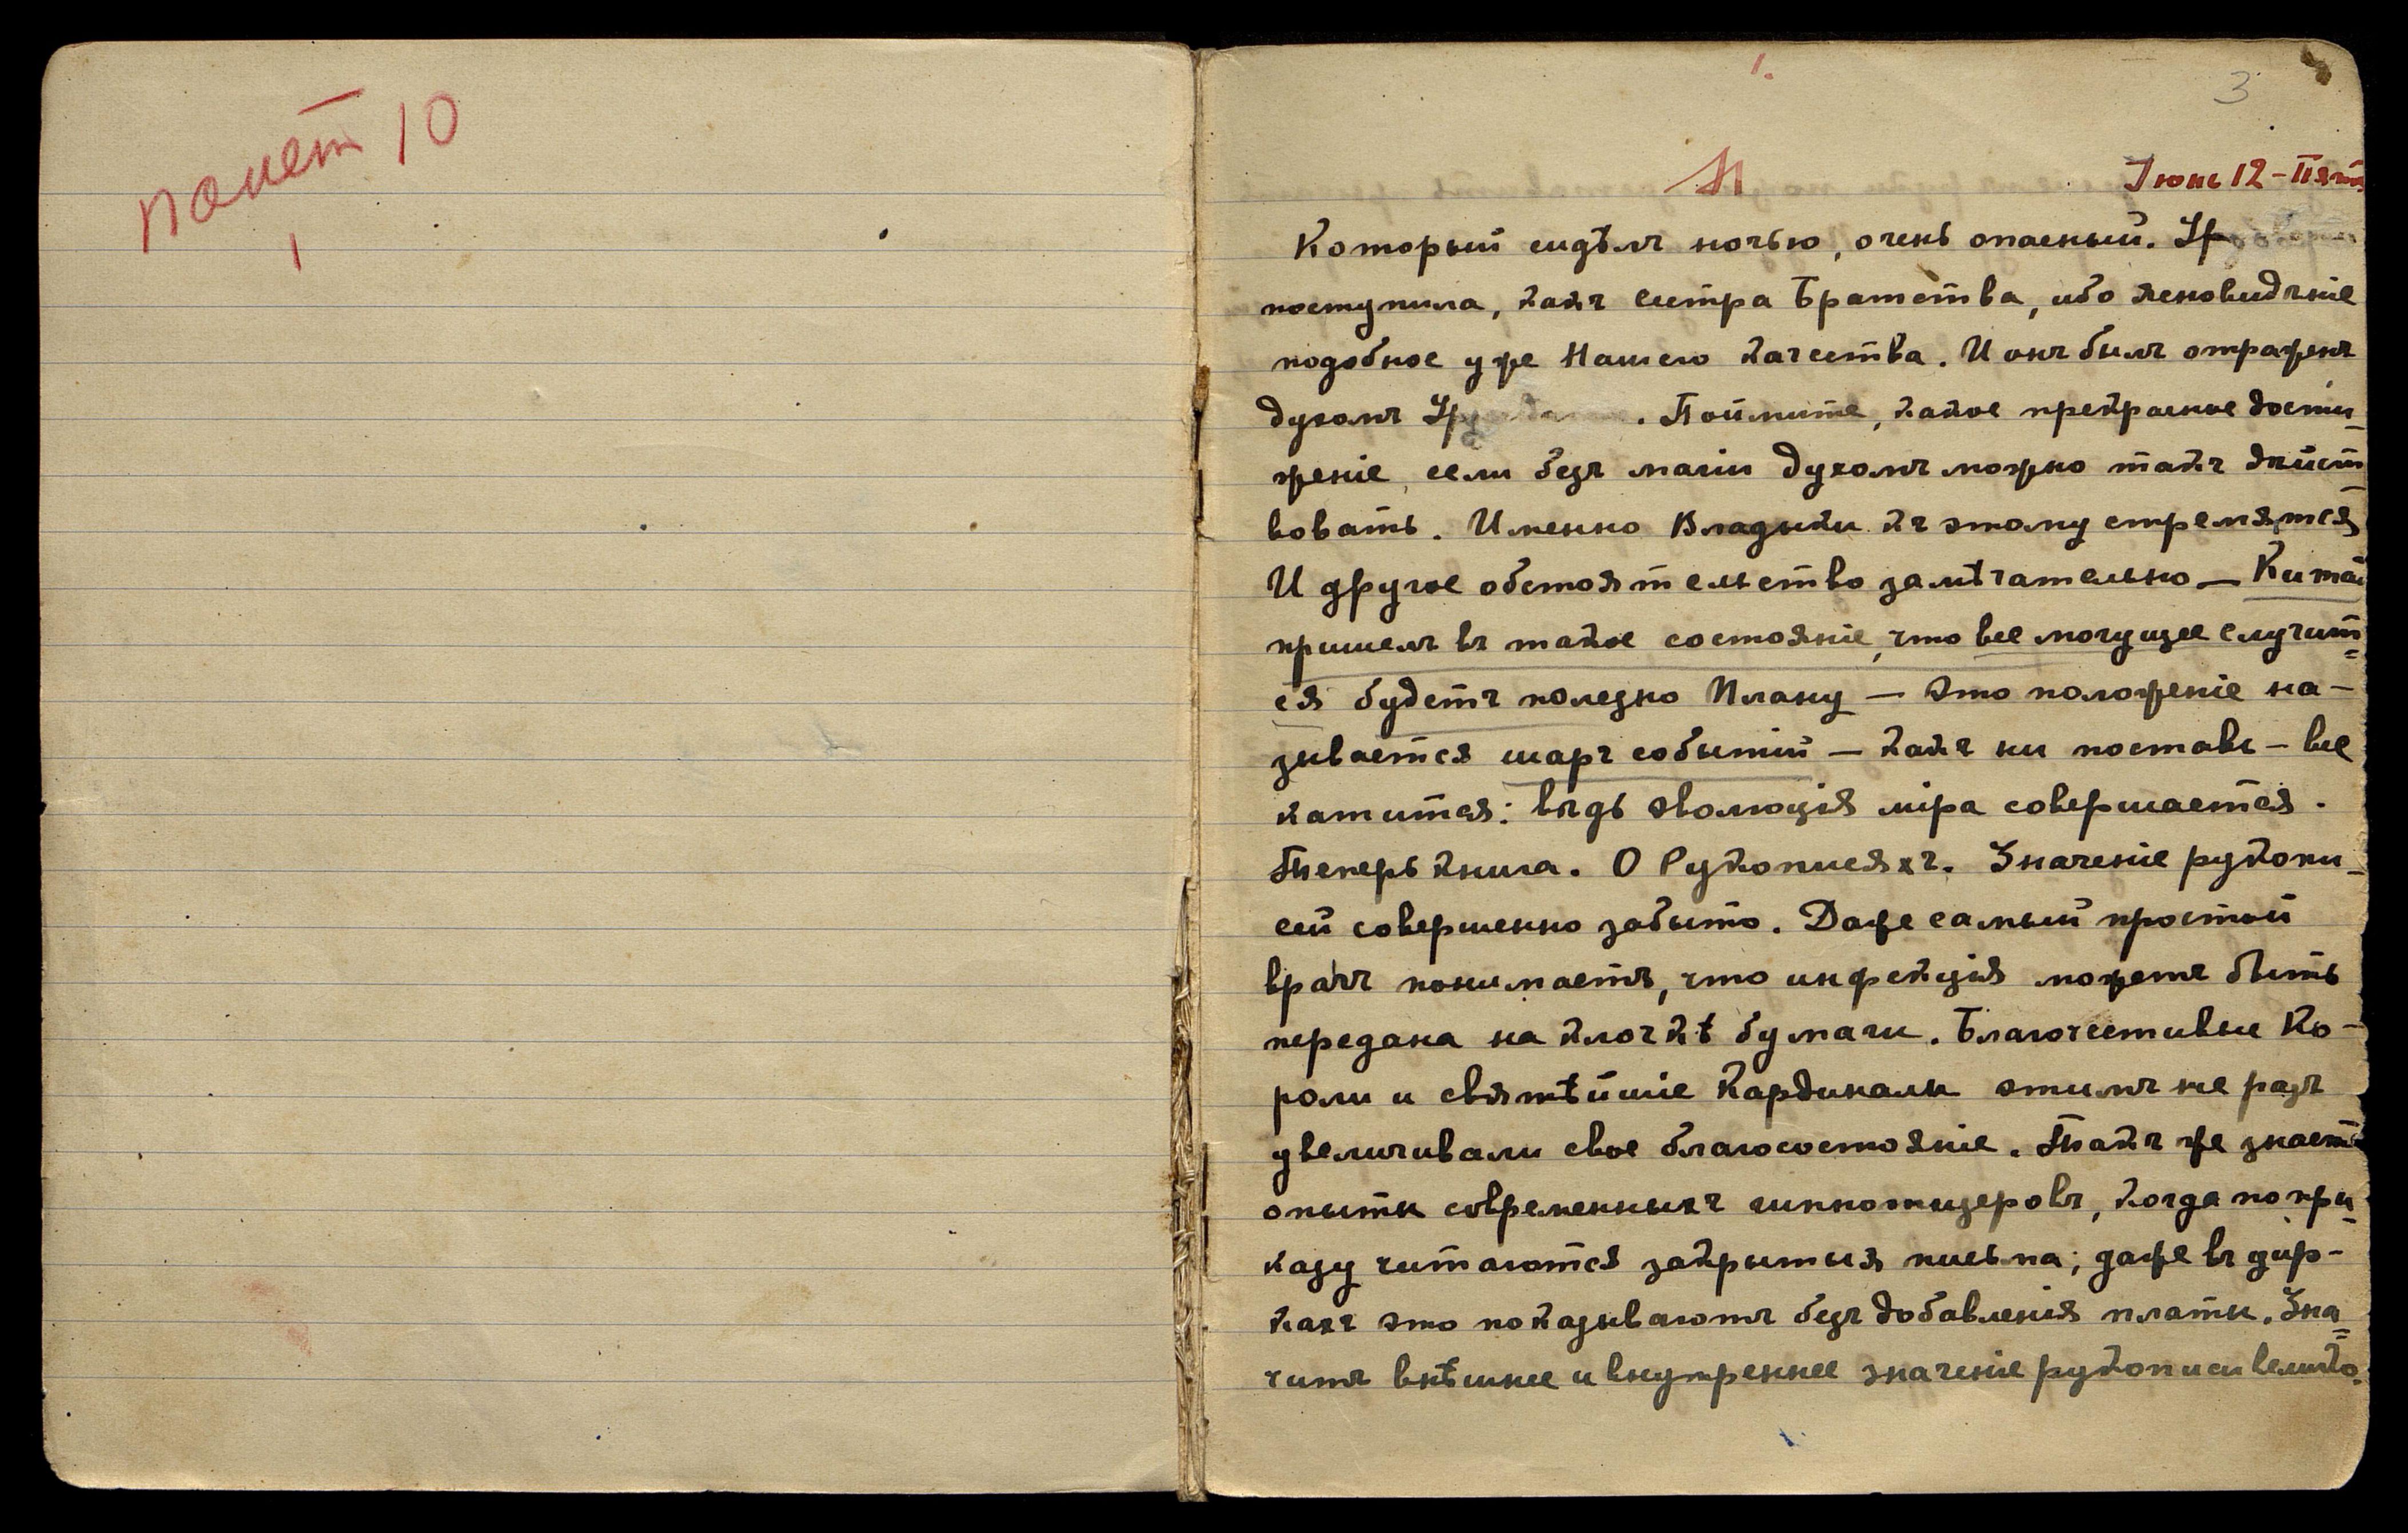 помет 10
1
1.
3
Іюнь 12 - Пятн
Который сидѣлъ ночью, очень опасный. Ур
поступила, какъ систра Братства, ибо ясновидѣніе
подобное уже Нашего качества. И онъ былъ отраженъ
духомъ Ур. Поймите, какое прекрасное дости-
женіе, если безъ магіи духомъ можно такъ дѣйст-
вовать. Именно Владыки къ этому стремятся
И другое обстоятельство замѣчательно — Китай
пришелъ въ такое состояніе, что все могущее случит=
ся будетъ полезно Плану — это положеніе на-
зывается шаръ событій — какъ ни поставь — все
катится: вѣдь эволюція міра совершается.
Теперь книга. О Рукописяхъ. Значеніе рукопи-
сей совершенно забыто. Даже самый простой
врачъ понимаетъ, что инфекція можетъ быть
передана на клочкѣ бумаги. Благочестивые Ко-
роли и святѣйшіе Кардиналы этимъ не разъ
увеличивали свое благосостояніе. Также знаете
опыты современныхъ гипнотизеровъ, когда по при-
казу читаются закрытыя письма; даже въ цир-
кахъ это показываютъ безъ добавленія платы. Зна=
читъ внѣшнее и внутреннее значеніе рукописи велико.